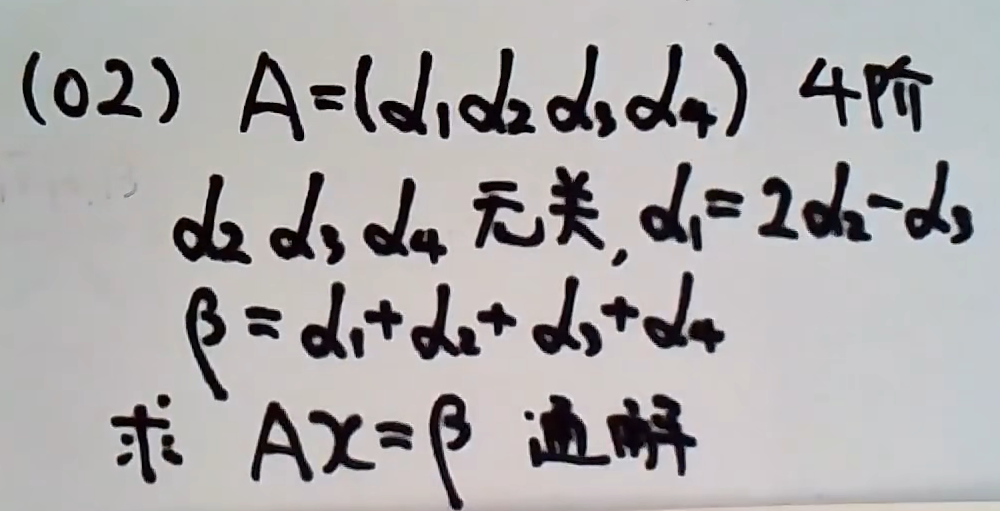 (02) A=(α₁α₂α₃α₄) 4阶
α₂ α₃ α₄ 无关, α₁=2α₂-α₃
β=α₁+α₂+α₃+α₄
求 Ax=β 通解